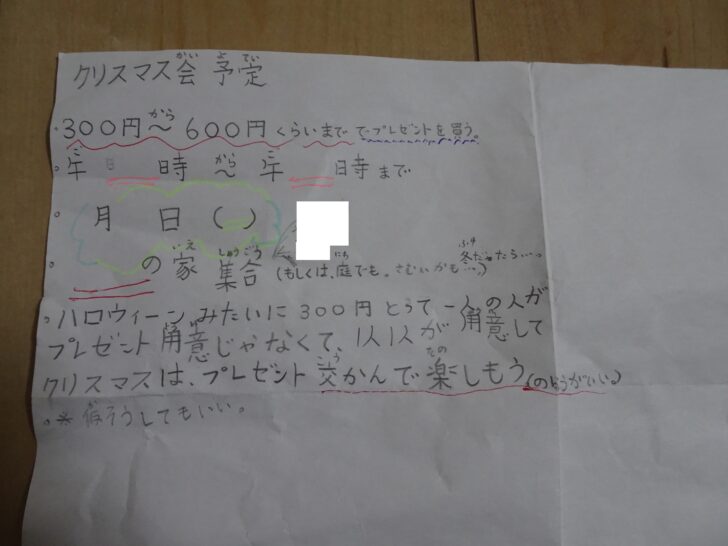 クリスマス会 予定
・300円〜600円くらいまで でプレゼントを買う。
。午 時 〜 午 時まで
。 月 日( )
。 の家 集合 (もしくは、庭でも。さむいかも冬だったら…。)
。ハロウィーンみたいに300円とって一人の人が
プレゼント用意じゃなくて、1人1人が用意して
クリスマスは、プレゼント交かんで楽しもう(のほうがいい。)
。※仮そうしてもいい。